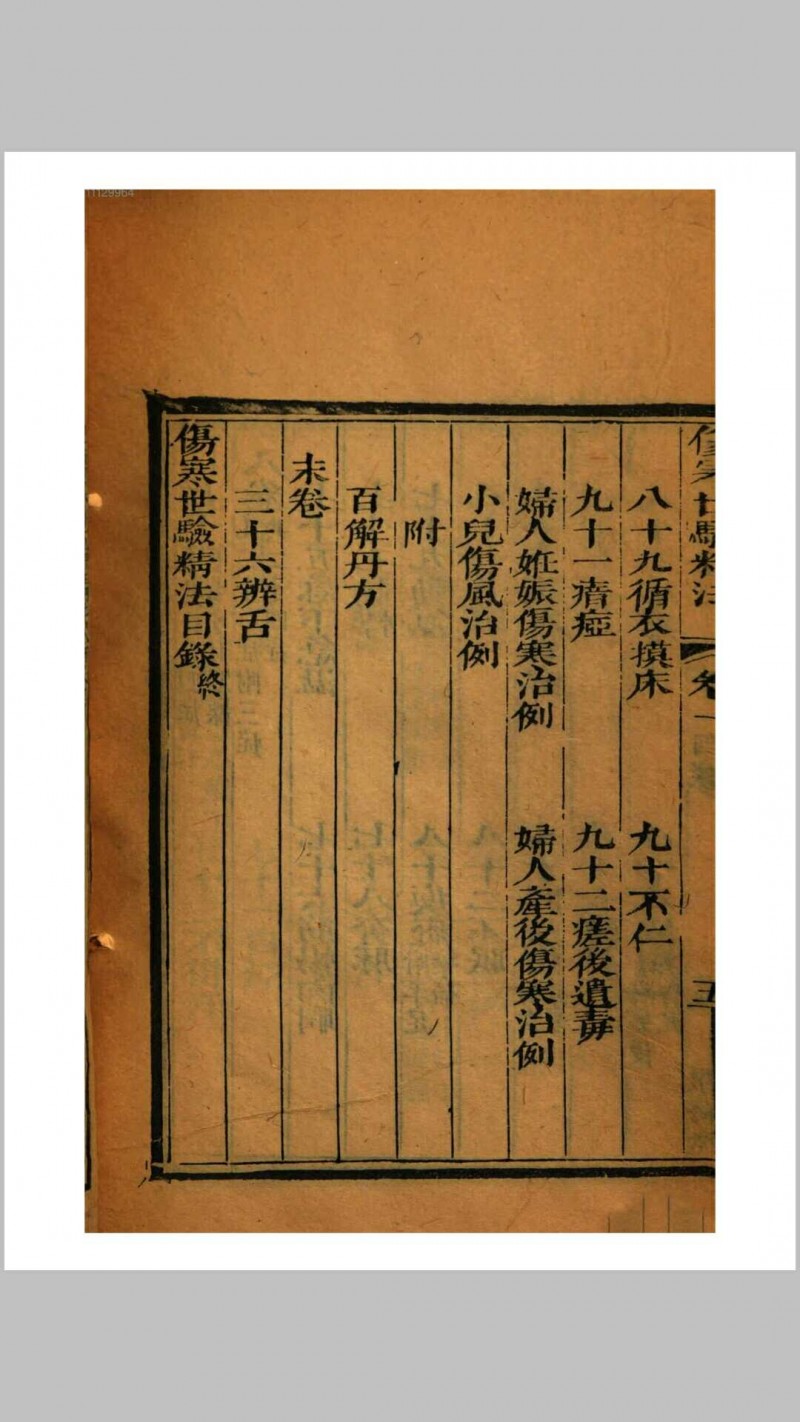 傷寒世驗精法 卷一 五
八十九循衣摸床 九十不仁
九十一瘖瘂 九十二瘥後遺毒
婦人姙娠傷寒治例 婦人產後傷寒治例
小兒傷風治例
附
百解丹方
末卷
三十六辨舌
傷寒世驗精法目錄終
11129964